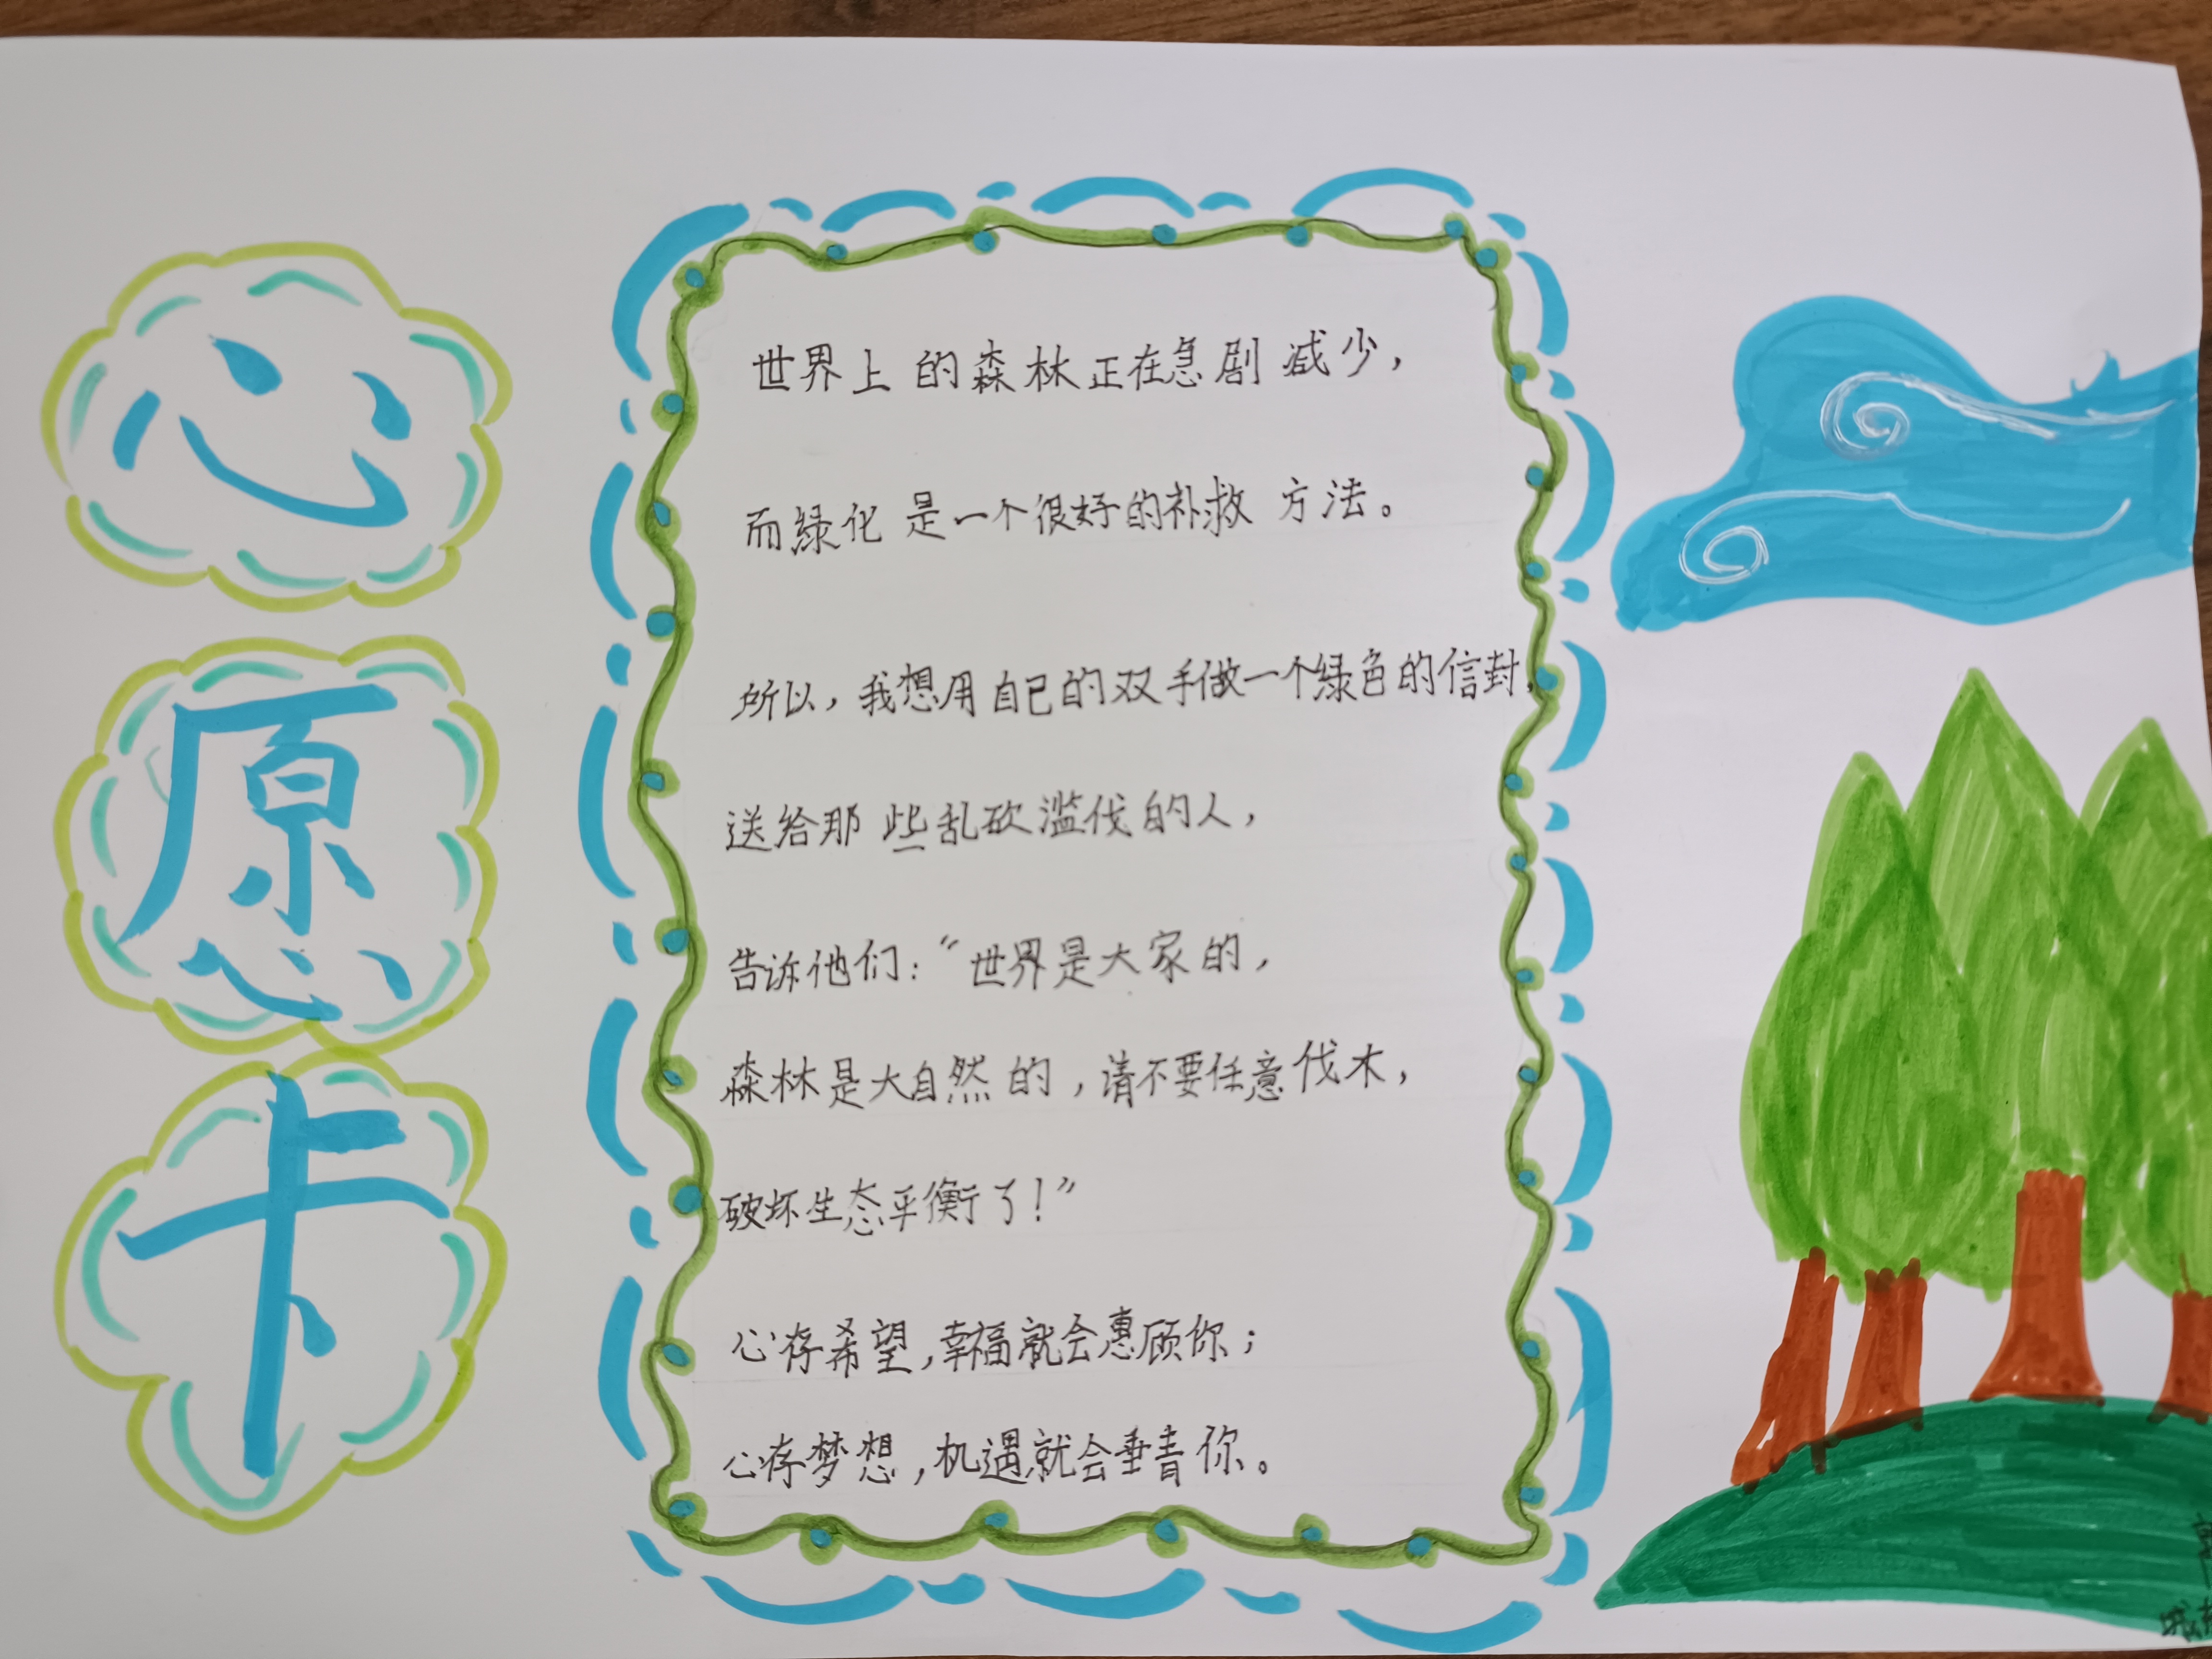 心
愿
卡
世界上的森林正在急剧减少，
而绿化是一个很好的补救方法。
所以，我想用自己的双手做一个绿色的信封，
送给那些乱砍滥伐的人，
告诉他们：“世界是大家的，
森林是大自然的，请不要任意伐木，
破坏生态平衡了！”
心存希望，幸福就会惠顾你；
心存梦想，机遇就会垂青你。